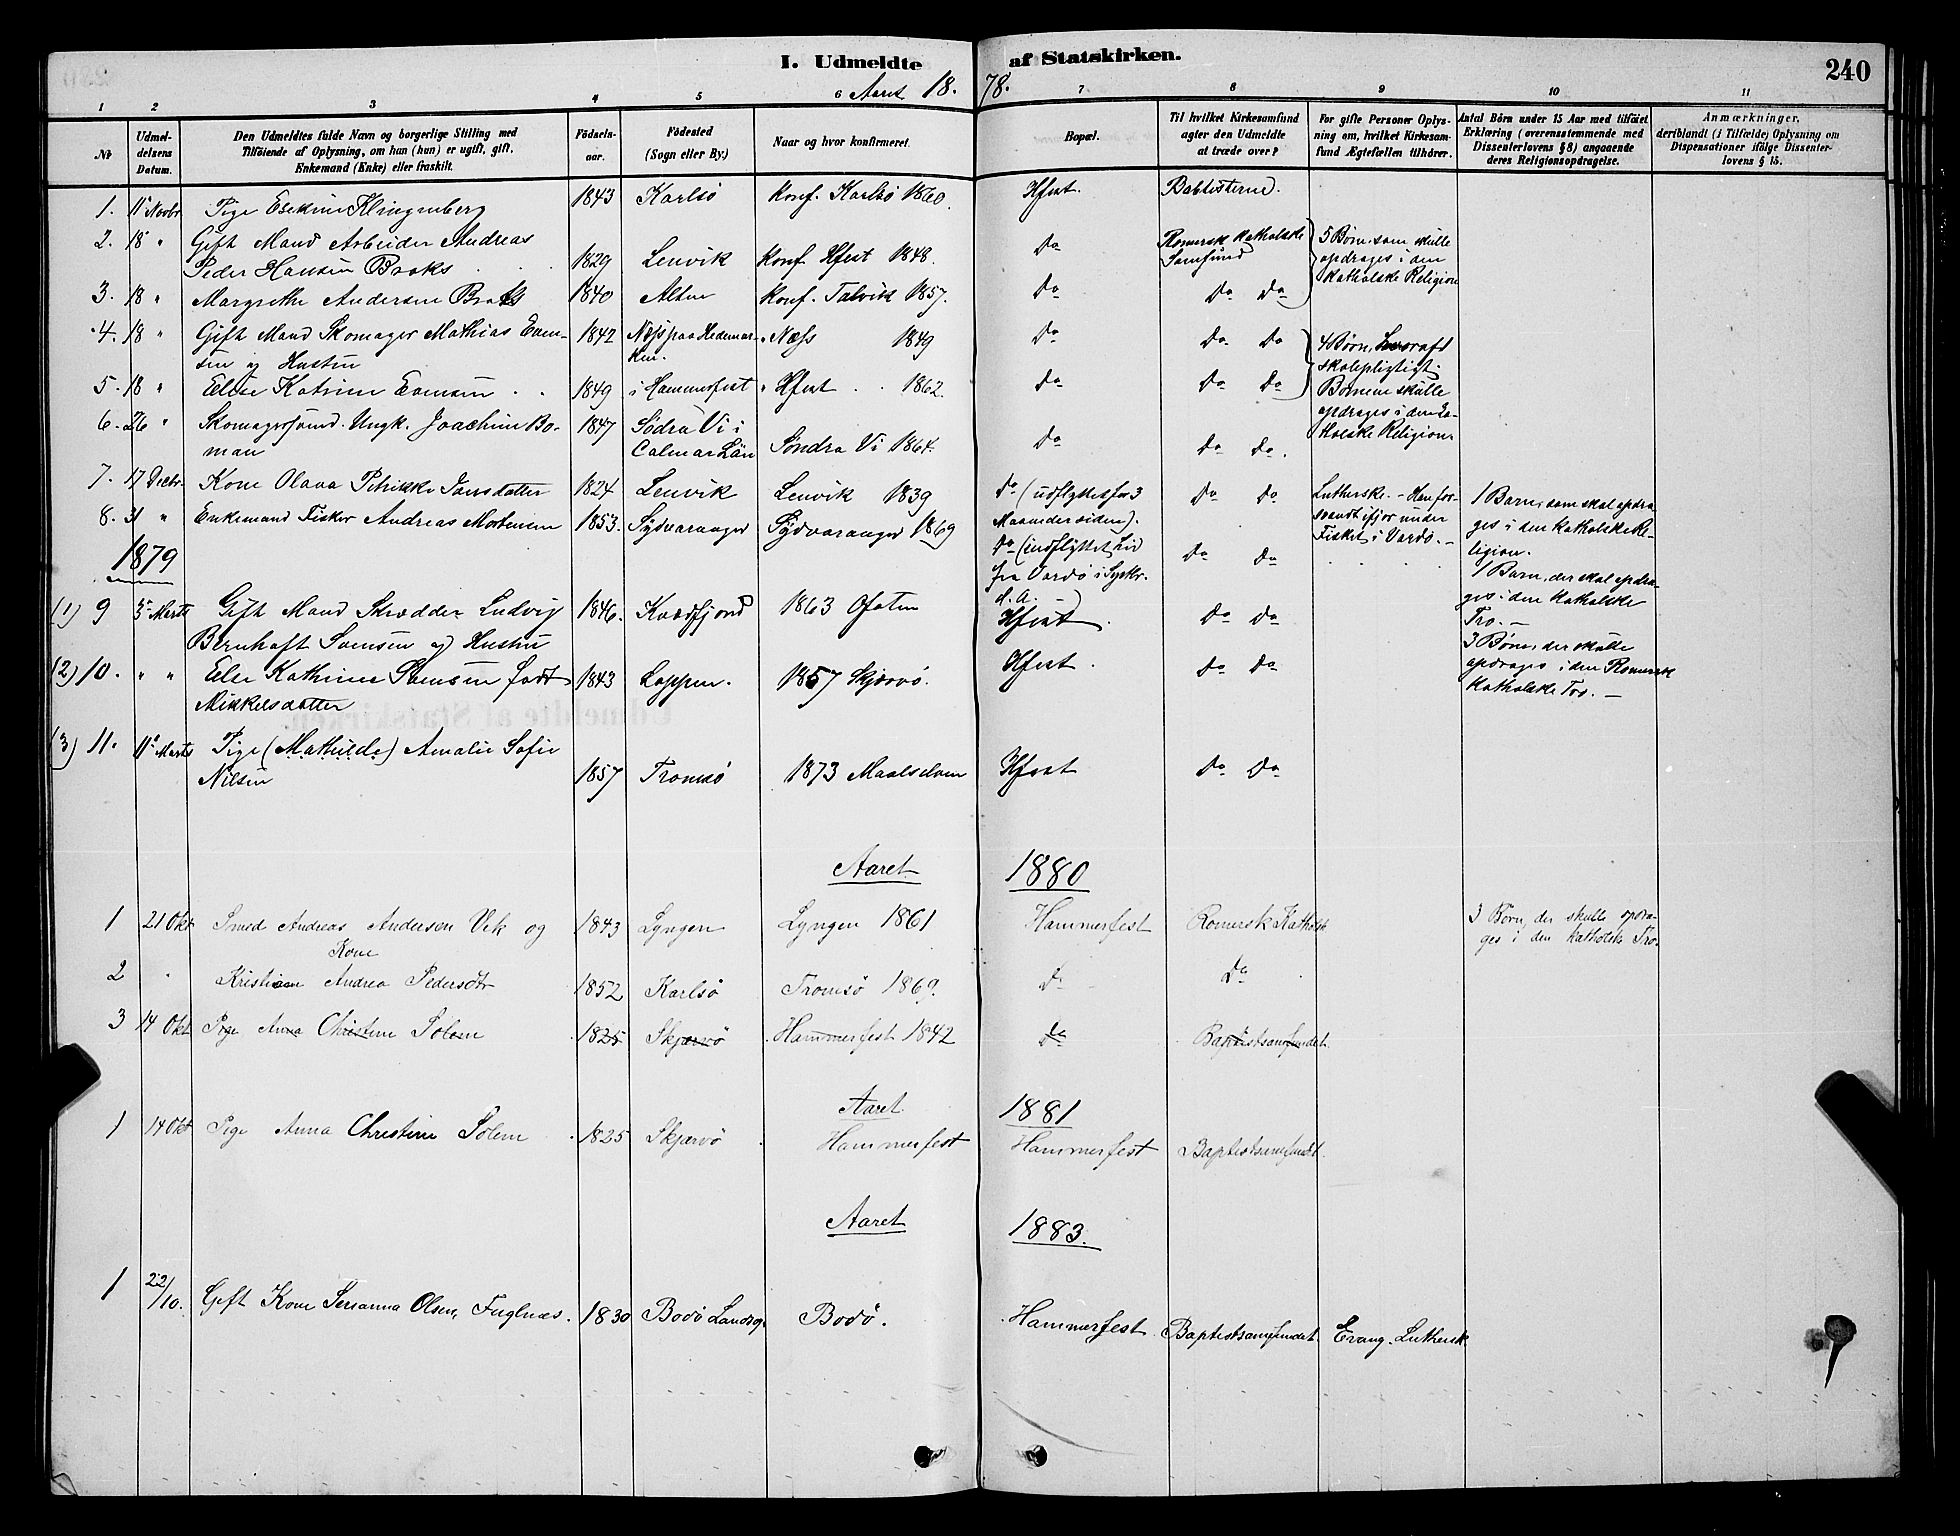 I. Udmeldte af Statskirken.
240
6 Aaret 18. 78.
1 2 3 4 5 7 8 9 10 11
Nr
Udmel-
delsens
Datum.
Den Udmeldtes fulde Navn og borgerlige Stilling med
Tilføiende af Oplysning, om han (hun) er ugift, gift,
Enkemand (Enke) eller fraskilt.
Fødsels-
aar.
Fødested
(Sogn eller By.)
Naar og hvor konfirmeret.
Bopæl.
Til hvilket Kirkesamfund
agter den Udmeldte
at træde over?
For gifte Personer Oplys-
ning om, hvilket Kirkesam-
fund Ægtefællen tilhører.
Antal Börn under 15 Aar med tilföiet
Erklæring (overensstemmende med
Dissenterlovens § 8) angaaende
deres Religionsopdragelse.
Anmærkninger,
deriblandt (i Tilfælde) Oplysning om
Dispensationer ifölge Dissenter-
lovens § 15.
1. 11 Novbr Pige Esekine Klingenberg 1843 Karlsö Konf. Karlsö 1860. Hfest. Babtisterne.
2. 18 " Gift Mand Arbeider Andreas
Peder Hansen Braks 1829 Lenvik Konf. Hfest 1848. Do Romersk Katholske
Samfund
5 Börn, som skulle
opdrages i den
Katholske Religion
3. 18 " Margrethe Andersen Braks 1840 Alten Konf. Talvik 1857. Do Do Do
4. 18 " Gift Mand Skomager Mathias Evens-
sen og Hustru 1842 Næss paa Hedemar-
ken. " Næss 1849 Do Do Do
4 Börn, hvoraf 1
skolepligtigt.
Börnene skulle
opdrages i den Ka-
tholske Religion
5. 18 " Else Katrine Evensen 1849 i Hammerfest " Hfest 1862. Do Do Do
6. 26 " Skomagersvend Ungk. Joachim Bo-
man 1847 Södra Vi i
Calmar Län Söndra Vi 1864. Do Do Do.
7. 17 Decbr. Kone Olava Petrikke Jansdatter 1824 Lenvik Lenvik 1839 Do (udflyttet for 3
Maaneder siden). Do Do Lutherske. - Han for-
svandt ifjor under
Fisket i Vardö. -
1 Barn, som skal opdra-
ges i den Katholske Re-
ligion.
8. 31 " Enkemand Fisker Andreas Mortensen 1853. Sydvaranger Sydvaranger 1869 Do (indflyttet hid
fra Vardö i Septbr.
d. A. -) Do Do
1 Barn, der skal opdra-
ges i den Katholske
Tro. -
1879
(1) 9 5 Marts Gift Mand Skrædder Ludvig
Bernhoft Samsen og Hustru 1846. Kvædfjord 1863 Ofoten Hfest. Do Do
3 Börn, der skulle
opdrages i den Romersk
Katholske Tro. -
(2) 10. " " Else Kathrine Samsen født
Mikkelsdatter 1843 Loppen. 1857 Skjærvö. Hfest. Do Do
(3) 11. 11 Marts Pige (Mathilde) Amalie Sofie
Nilsen 1857 Tromsö 1873 Maalselven Hfest Do Do
Aaret 1880
1 21 Okt Smed Andreas Andersen Vik og
Kone 1843 Lyngen Lyngen 1861 Hammerfest Romersk Katholsk 3 Börn, der skulle opdra-
ges i den katholske Tro.
2 " Kristiane Andrea Pedersdtr 1852 Karlsö Tromsö 1869. Do Do
3 14 Okt Pige Anna Christine Solem 1825 Skjærvö Hammerfest 1842 do Baptistsamfundet.
Aaret 1881
1 14 Okt Pige Anna Christine Solem 1825 Skjærvö Hammerfest Hammerfest Baptistsamfundet.
Aaret 1883.
1 22/10. Gift Kone Serianna Olsen, Fuglnæs. 1830 Bodö Landsog. Bodö. Hammerfest Baptistsamfundet. Evang. Luthersk.